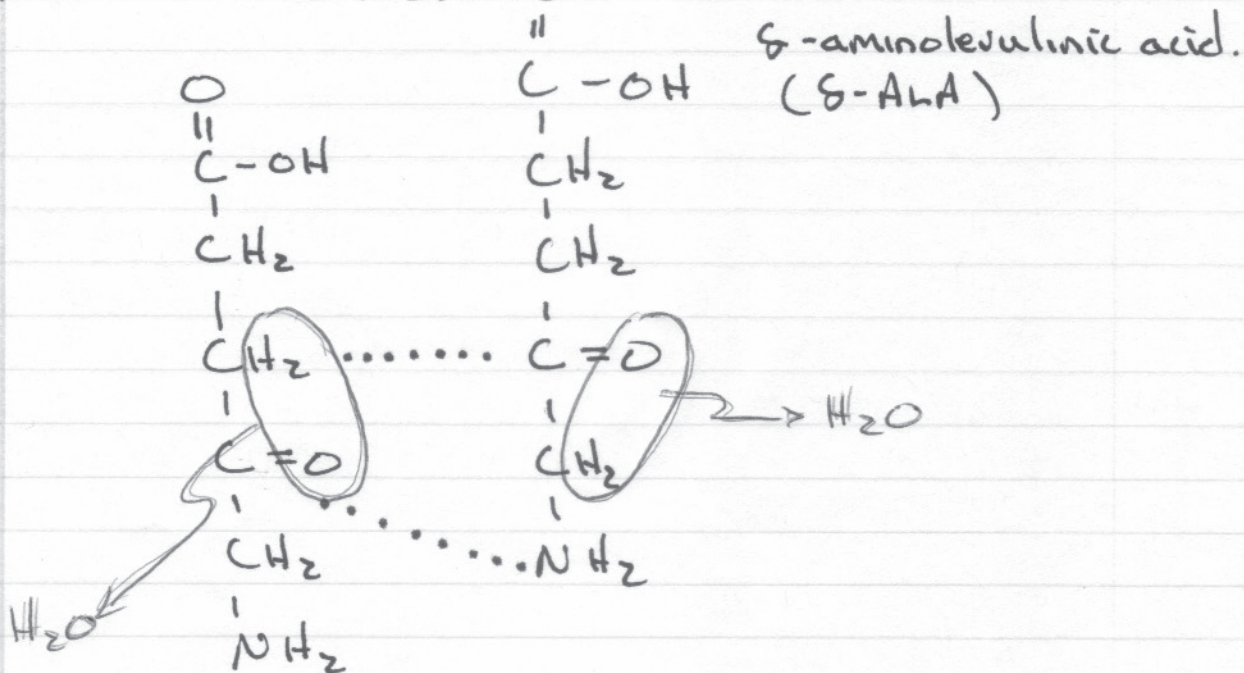 δ-aminolevulinic acid.
(δ-ALA)
O
||
C-OH
|
CH₂
|
CH₂
|
C=O
|
CH₂
|
NH₂
||
C-OH
|
CH₂
|
CH₂
|
C=O
|
CH₂
|
NH₂
H₂O
H₂O